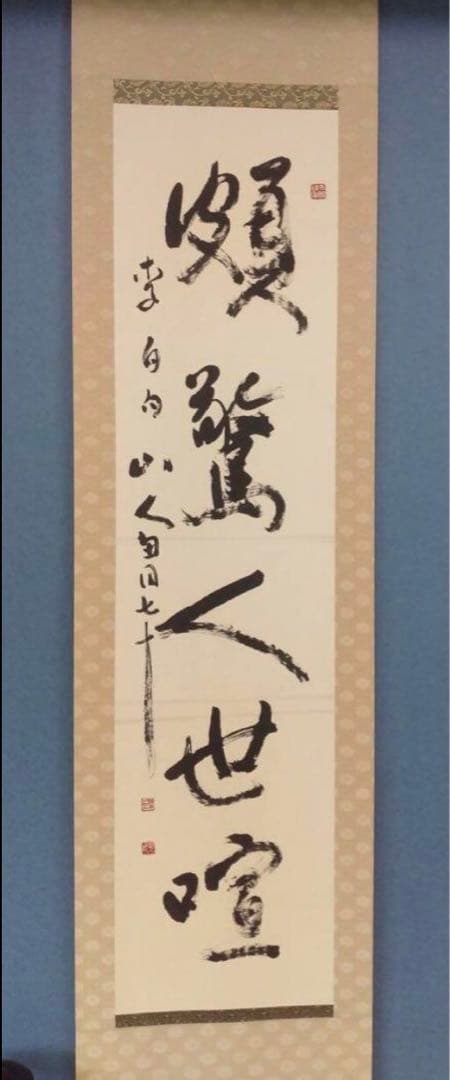 頗驚人世喧
李白句山人七十